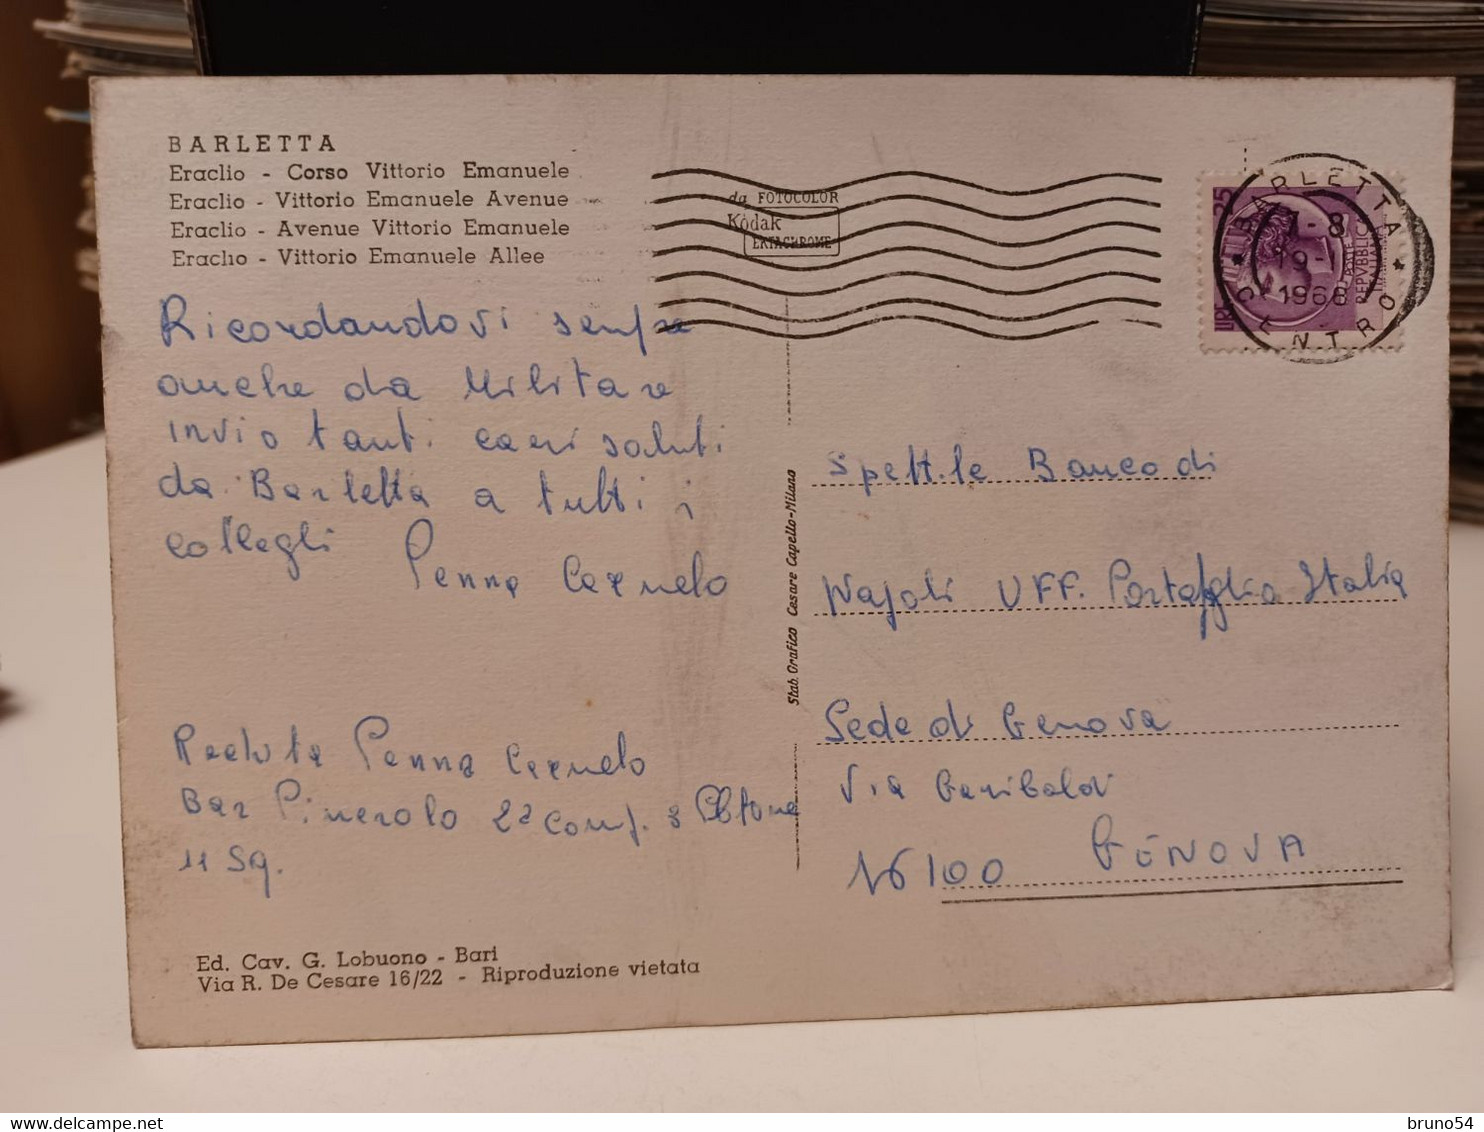 BARLETTA
Eraclio - Corso Vittorio Emanuele
Eraclio - Vittorio Emanuele Avenue
Eraclio - Avenue Vittorio Emanuele
Eraclio - Vittorio Emanuele Allee
da FOTOCOLOR
Kodak
EKTACHROME
BARLETTA
CENTRO
7-8
19-
1968
LIRE 25
POSTE
REPVBBLICA
ITALIANA
Ricordandovi sempre
anche da Militare
invio tanti cari saluti
da Barletta a tutti i
colleghi Penna Carmelo
Recluta Penna Carmelo
Bar Pinerolo 2ª Comp. 3 Pltone
11 Sq.
Stab. Grafico Cesare Capello-Milano
Spett.le Banco di
Napoli UFF. Portafoglio Italia
Sede di Genova
Via Garibaldi
16100 GENOVA
Ed. Cav. G. Lobuono - Bari
Via R. De Cesare 16/22 - Riproduzione vietata
bruno54